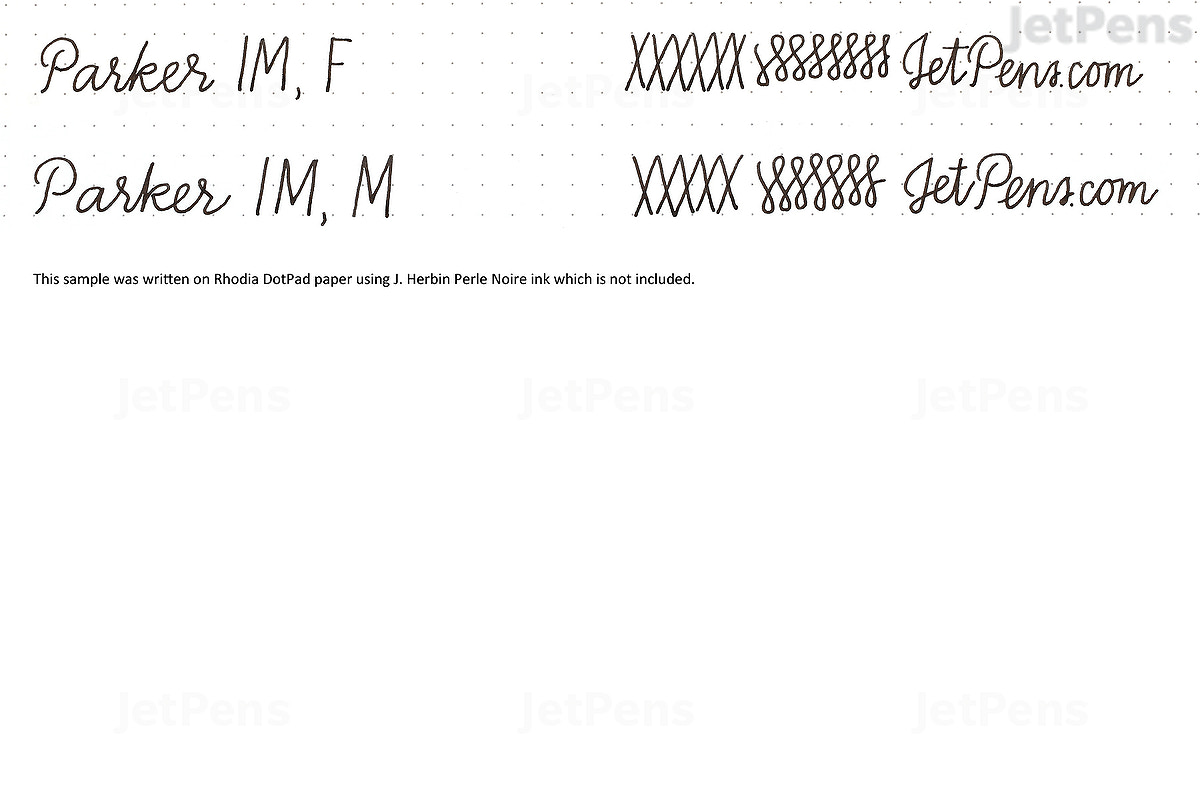 JetPens
Parker IM, F XXXXX JetPens.com
Parker IM, M XXXX JetPens.com
This sample was written on Rhodia DotPad paper using J. Herbin Perle Noire ink which is not included.
JetPens JetPens JetPens
JetPens JetPens JetPens